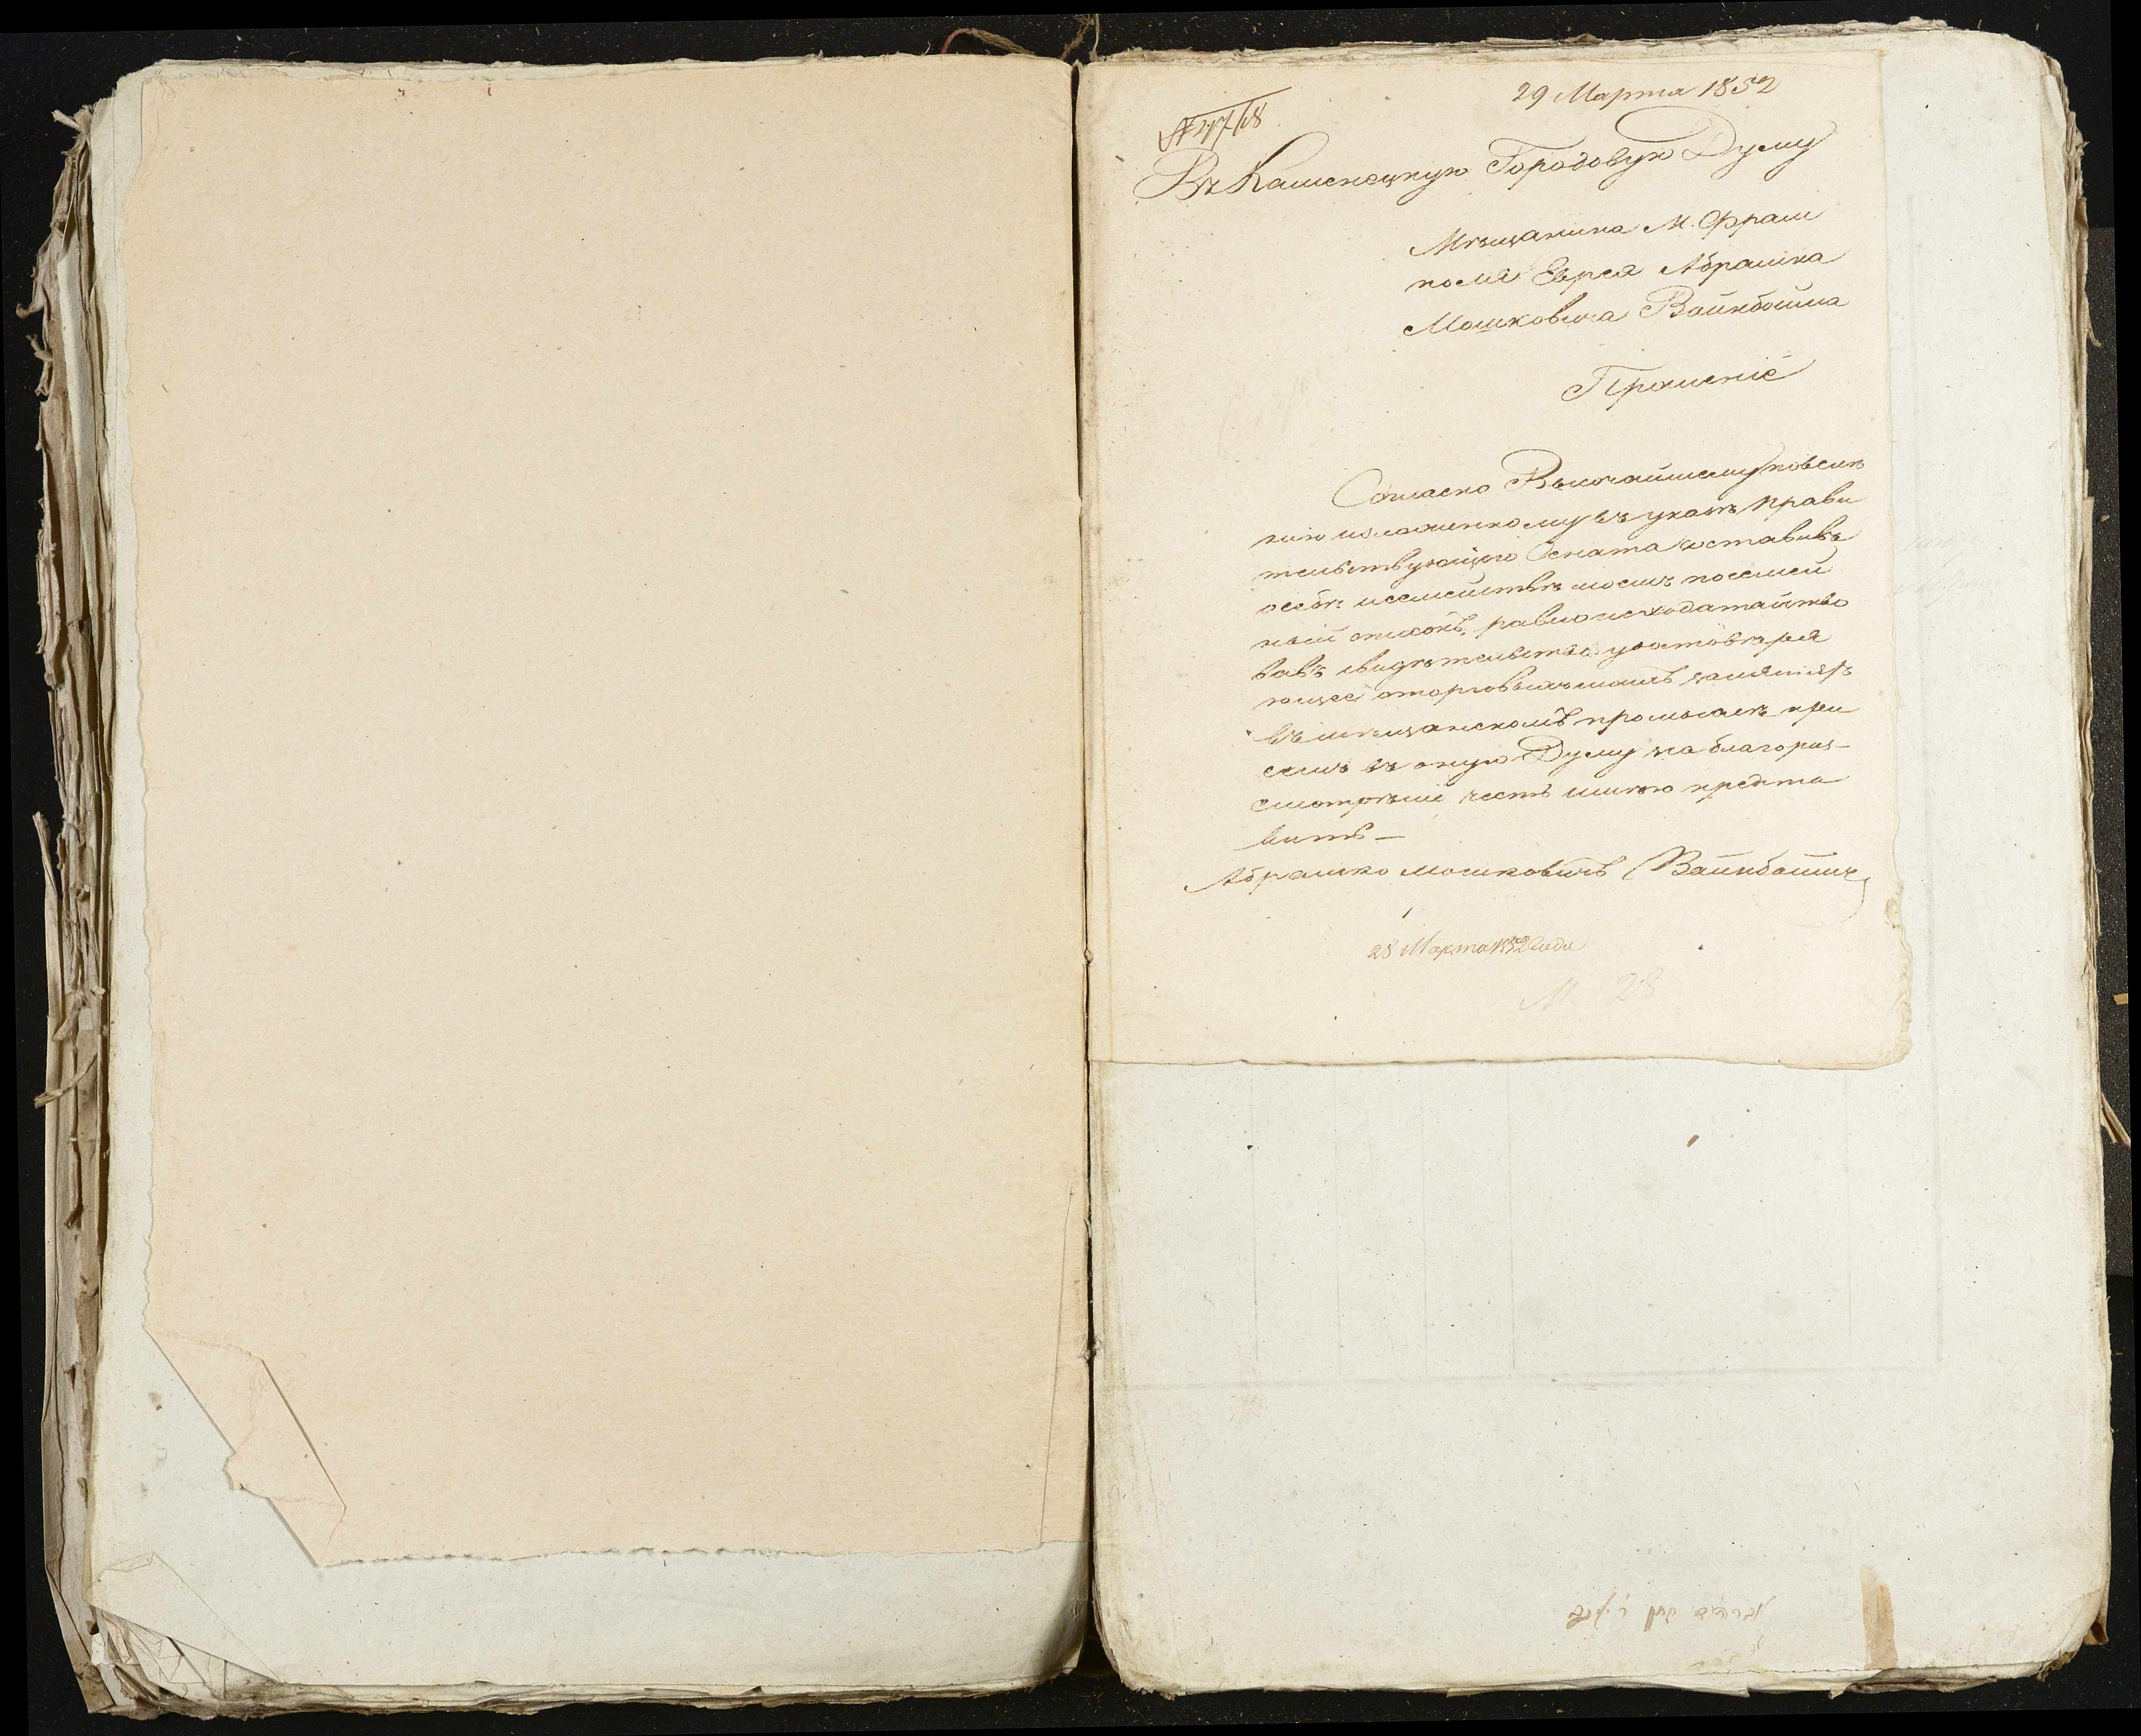 29 Марта 1852
Въ Каменецкую Городовую Думу
Мѣщанина М. Фрам
поля Еврея Абрамка
Мошковича Вайнбойма
Прошеніе
Согласно Высочайшему повелѣ
нію изложенному въ указѣ Прави
тельствующаго Сената составивъ
осебѣ исемействѣ моемъ посемей
ный списокъ, равно исходатайство
вавъ свидѣтельство удостовѣря
ющее оторговыхъ моихъ занятіяхъ
въ мѣщанскомъ промыслѣ при
семъ въ оную Думу на благораз-
смотрѣніе честь имѣю предста
вить —
Абрамко Мошковичъ Вайнбоймъ
28 Марта 1852 года
М. 28